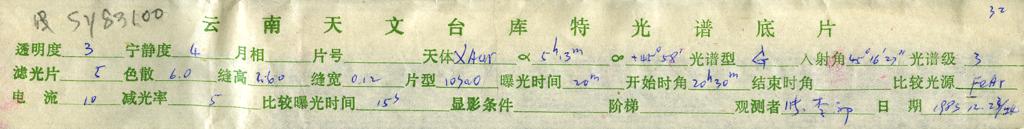 SY83100 云南天文台库特光谱底片 32
透明度 3 宁静度 4 月相 片号 天体 α 5h13m +45°58′ 光谱型 G 入射角 45°16′27″ 光谱级 3
滤光片 5 色散 6.0 缝高 2.60 缝宽 0.12 片型 曝光时间 20m 开始时角 20h30m 结束时角 比较光源 FeAr
电流 10 减光率 5 比较曝光时间 15s 显影条件 阶梯 观测者 日期 1983.12.